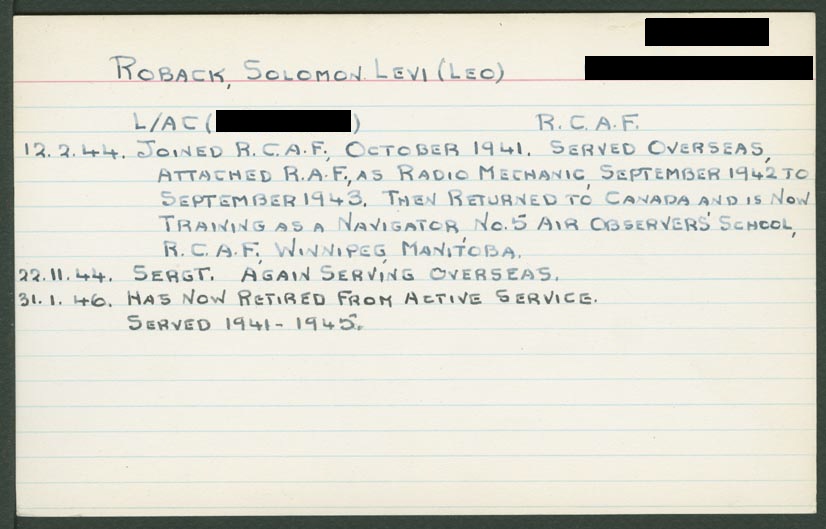 ROBACK, SOLOMON LEVI (LEO)
L/AC ( ) R.C.A.F.
12.2.44. JOINED R.C.A.F., OCTOBER 1941. SERVED OVERSEAS,
ATTACHED R.A.F., AS RADIO MECHANIC, SEPTEMBER 1942 TO
SEPTEMBER 1943. THEN RETURNED TO CANADA AND IS NOW
TRAINING AS A NAVIGATOR, NO.5 AIR OBSERVERS' SCHOOL,
R.C.A.F., WINNIPEG, MANITOBA.
22.11.44. SERGT. AGAIN SERVING OVERSEAS.
31.1.46. HAS NOW RETIRED FROM ACTIVE SERVICE.
SERVED 1941-1945.